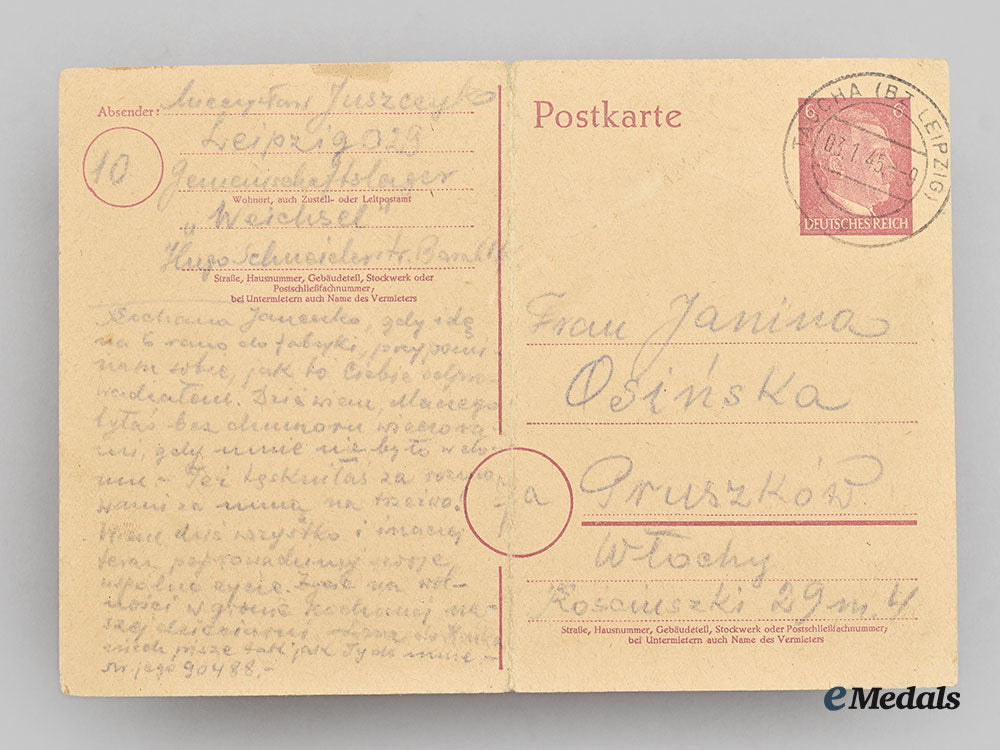 Absender: Mieczysław Juszczyk
Leipzig O 29
10
Gemeinschaftslager
Wohnort, auch Zustell- oder Leitpostamt
„Weichsel"
Hugo Schneiderstr. Bar
Straße, Hausnummer, Gebäudeteil, Stockwerk oder
Postschließfachnummer;
bei Untermietern auch Name des Vermieters
Kochana Janeczko, gdy idę
na 6 rano do fabryki, przypomi-
nam sobie, jak to Ciebie odpro-
wadzałem. Dziś wiem, dlaczego
byłaś bez humoru wieczora
mi, gdy mnie nie było w do
mu - Też tęskniłaś za
za mną na
Wiem dziś wszystko i inaczej
teraz poprowadzimy swoje
wspólne życie. Życie na wol-
ności w gronie kochanej na-
szej dzieciarni. do
niech pisze tak jak Ty do mnie -
nr. jego 90488.-
Postkarte
TAUCHA (BZ LEIPZIG)
03.1.45.-9
6 6
DEUTSCHES REICH
Frau Janina
Osińska
5a Pruszków
Włochy
Kościuszki 29 m. 4
Straße, Hausnummer, Gebäudeteil, Stockwerk oder Postschließfachnummer;
bei Untermietern auch Name des Vermieters
eMedals